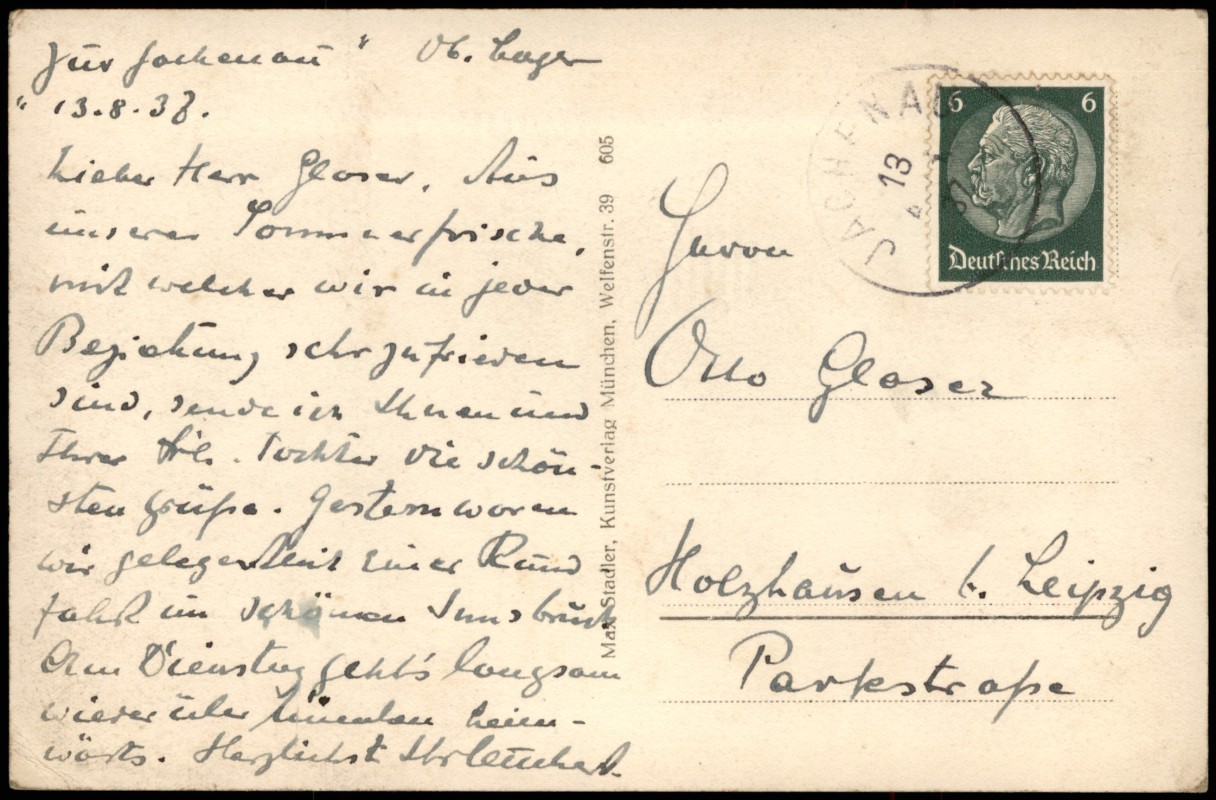 zur Jachenau" Ob. Lager
" 13.8.38.
Lieber Herr Glaser, Aus
unserer Sommerfrische,
mit welcher wir in jeder
Beziehung sehr zufrieden
sind, sende ich Ihnen und
Ihrer Frl. Tochter die schön-
sten Grüße. Gestern waren
wir gelegentlich einer Rund
fahrt im schönen Innsbruck
Am Dienstag geht's langsam
wieder über München heim-
wärts. Herzlichst Ihr
Max Stadler, Kunstverlag München, Welfenstr. 39 605
JACHENAU
13
6 6
Deutsches Reich
Herrn
Otto Glaser
Holzhausen b. Leipzig
Parkstraße